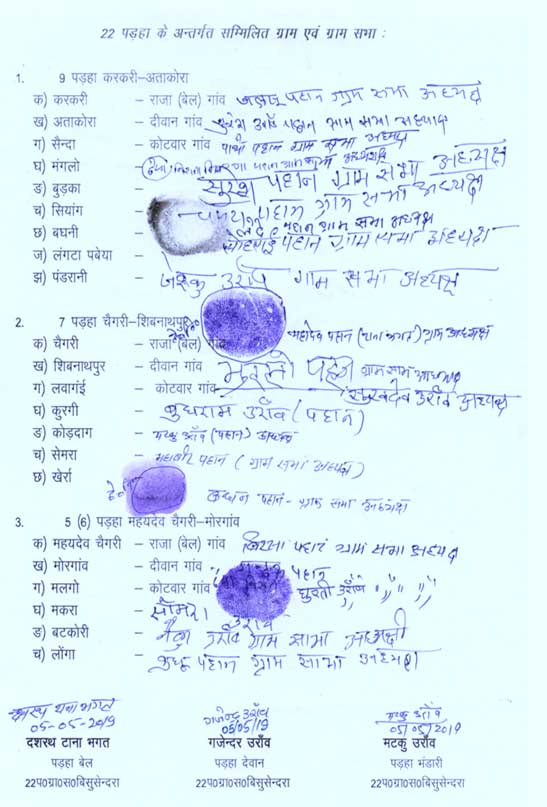 22 पड़हा के अन्तर्गत सम्मिलित ग्राम एवं ग्राम सभा :
1. 9 पड़हा करकरी–अताकोरा
क) करकरी – राजा (बेल) गांव पहान ग्राम सभा अध्यक्ष
ख) अताकोरा – दीवान गांव उराँव पहान ग्राम सभा अध्यक्ष
ग) सैन्दा – कोटवार गांव पहान ग्राम सभा अध्यक्ष
घ) मंगलो – पहान ग्राम सभा अध्यक्ष
ङ) बुड़का – सुरेश पहान ग्राम सभा अध्यक्ष
च) सियांग – पहान ग्राम सभा अध्यक्ष
छ) बघनी – पहान ग्राम सभा अध्यक्ष
ज) लंगटा पबेया – पहान ग्राम सभा अध्यक्ष
झ) पंडरानी – उराँव ग्राम सभा अध्यक्ष
2. 7 पड़हा चैगरी–शिबनाथपुर
क) चैगरी – राजा (बेल) गांव महादेव पहान (टाना भगत) ग्राम अध्यक्ष
ख) शिबनाथपुर – दीवान गांव पहान ग्राम सभा अध्यक्ष
ग) लवागंई – कोटवार गांव सुखदेव उराँव अध्यक्ष
घ) कुरगी – बुधराम उराँव (पहान)
ङ) कोड़दाग – मटकु उराँव (पहान) अध्यक्ष
च) सेमरा – महाबीर पहान (ग्राम सभा अध्यक्ष)
छ) खेर्रा पहान - ग्राम सभा अध्यक्ष
3. 5 (6) पड़हा महयदेव चैगरी–मोरगांव
क) महयदेव चैगरी – राजा (बेल) गांव बिरसा पहान ग्राम सभा अध्यक्ष
ख) मोरगांव – दीवान गांव पहान
ग) मलगो – कोटवार गांव उराँव " " "
घ) मकरा – सोमरा उराँव
ङ) बटकोरी – उराँव ग्राम सभा अध्यक्ष
च) लोंगा – पहान ग्राम सभा अध्यक्ष
दशरथ टाना भगत गजेन्द्र उराँव मटकु उराँव
05-05-2019 05/05/19 05/05/2019
दशरथ टाना भगत गजेन्दर उराँव मटकु उराँव
पड़हा बेल पड़हा देवान पड़हा भंडारी
22प0ग्रा0स0बिसुसेन्दरा 22प0ग्रा0स0बिसुसेन्दरा 22प0ग्रा0स0बिसुसेन्दरा